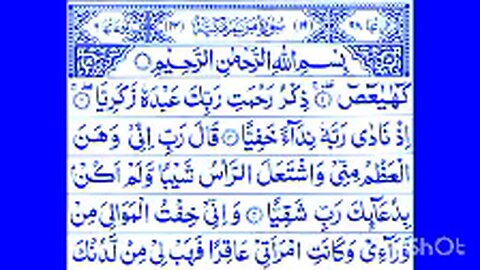 سورة مريم مكية
بسم الله الرحمن الرحيم
كهيعص ذِكْرُ رَحْمَتِ رَبِّكَ عَبْدَهٗ زَكَرِيَّا
اِذْ نَادٰى رَبَّهٗ نِدَآءً خَفِيًّا قَالَ رَبِّ اِنِّيْ وَهَنَ
الْعَظْمُ مِنِّيْ وَاشْتَعَلَ الرَّاْسُ شَيْبًا وَّلَمْ اَكُنْۢ
بِدُعَآئِكَ رَبِّ شَقِيًّا وَاِنِّيْ خِفْتُ الْمَوَالِيَ مِنْ
وَّرَآءِيْ وَكَانَتِ امْرَاَتِيْ عَاقِرًا فَهَبْ لِيْ مِنْ لَّدُنْكَ